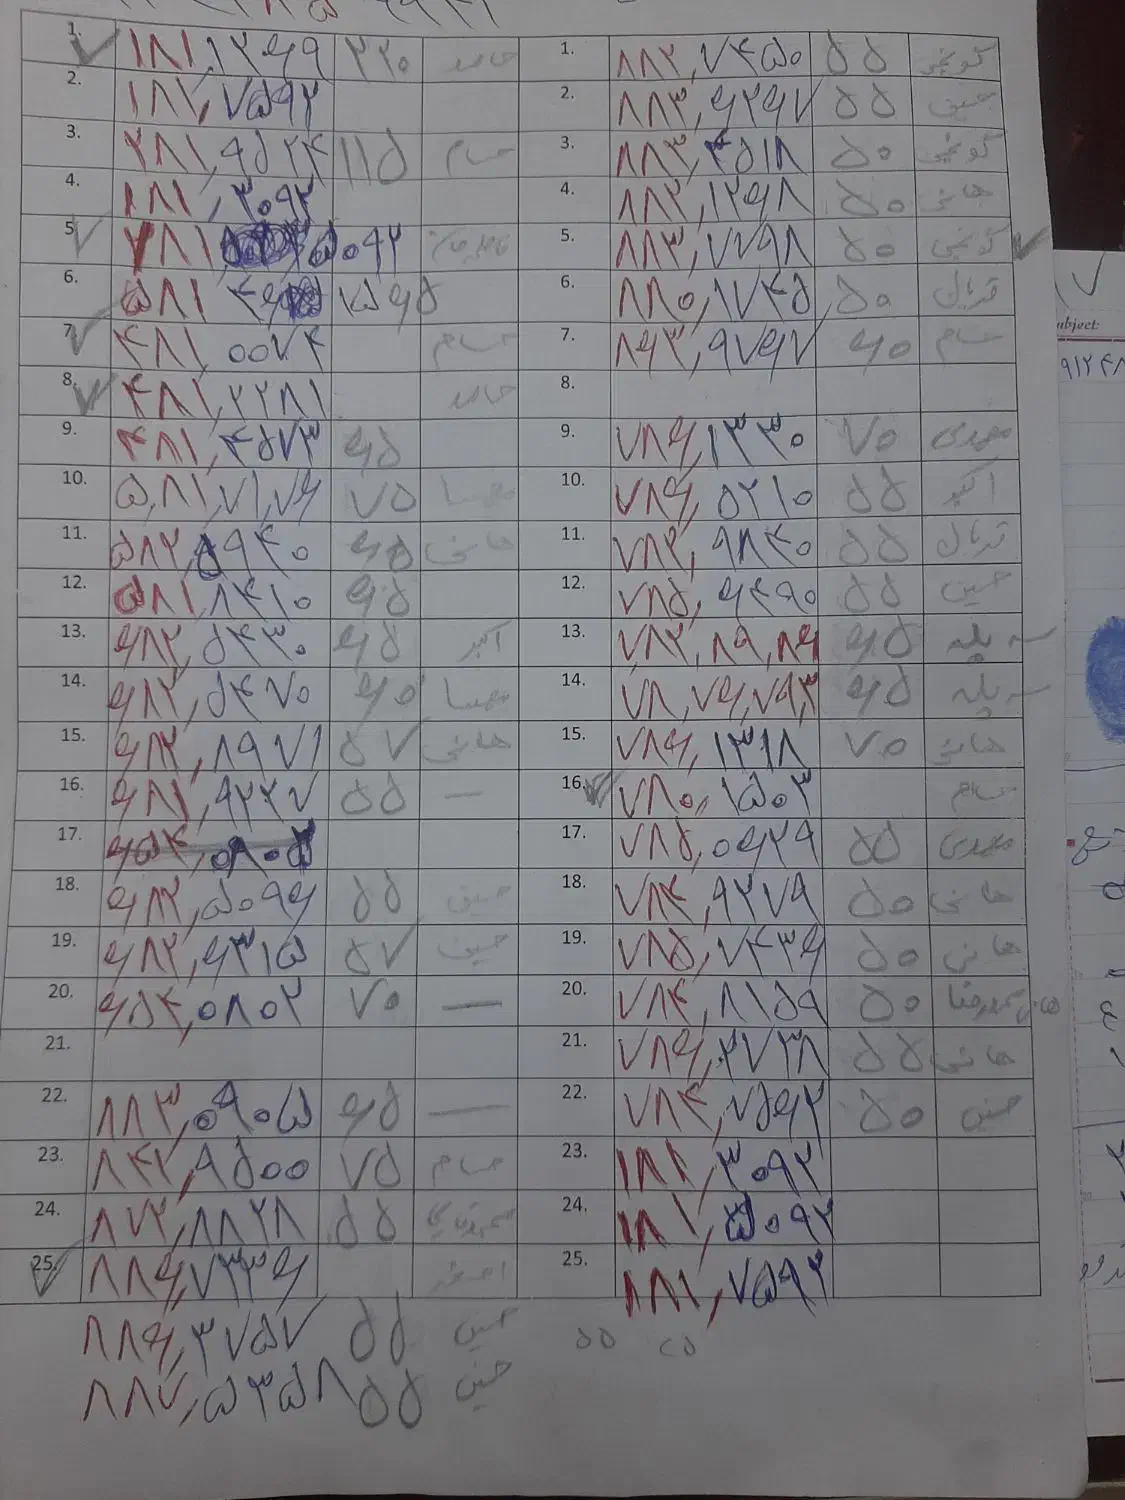 1. ۱۸۱,۱۲۶۹ ۲۲۰ حامد
2. ۱۸۲,۷۵۹۲
3. ۲۸۱,۹۵۲۴ ۱۱۵ حسام
4. ۱۸۱,۳۰۹۲
5. ۲۸۱ ۵۰۹۲
6. ۵۸۱
7. ۴۸۱,۰۰۷۴ حسام
8. ۴۸۱,۲۲۸۱ حامد
9. ۴۸۱,۴۵۷۳ ۶۵
10. ۵,۸۱,۷۱,۷۶ ۷۵ مهسا
11. ۵۸۲,۵۹۴۰ ۶۵ هانی
12. ۵۸۱,۸۴۱۰ ۶۵
13. ۶۸۲,۵۴۳۰ ۶۵ اکبر
14. ۶۸۲,۵۴۷۰ ۶۰ مهسا
15. ۶۸۲,۸۹۷۱ ۵۷ هانی
16. ۶۸۱,۹۲۲۷ ۵۵ —
17. ۶۵۴,۰۸۰۲
18. ۶۸۲,۵۰۹۶ ۵۵ حسین
19. ۶۸۲,۶۳۱۵ ۵۷ حسین
20. ۶۵۴,۰۸۰۲ ۷۰ —
21.
22. ۸۸۳,۰۹۰۵ ۶۵ —
23. ۸۴۲,۹۵۰۰ ۷۵ حسام
24. ۸۷۲,۸۸۲۸ ۵۵
25. ۸۸۶,۷۳۳۶ اصغر
۸۸۶,۳۷۵۷ ۵۵ حسین
۸۸۷,۵۳۵۸ ۵۵ حسین
1. ۸۸۲,۷۴۵۰ ۵۵
2. ۸۸۳,۶۲۶۷ ۵۵ حسین
3. ۸۸۳,۴۵۱۸ ۵۰
4. ۸۸۲,۱۲۶۸ ۵۰ هانی
5. ۸۸۳,۷۷۹۸ ۵۰
6. ۸۸۰,۱۷۴۵ ۵۰
7. ۸۶۳,۹۷۶۷ ۶۰ حسام
8.
9. ۷۸۶,۱۳۳۰ ۷۰ مهدی
10. ۷۸۶,۵۲۱۰ ۵۵ اکبر
11. ۷۸۲,۹۸۴۰ ۵۵
12. ۷۸۵,۶۴۹۰ ۵۵ حسین
13. ۷۸۲,۸۹,۸۶ ۶۵ سه پله
14. ۷۸,۷۶,۷۹,۳ ۶۵ سه پله
15. ۷۸۶,۱۳۱۸ ۷۰ هانی
16. ۷۸۰,۱۵۰۳ حسام
17. ۷۸۵,۰۶۲۹ ۵۵ مهدی
18. ۷۸۴,۹۲۷۹ ۵۰ هانی
19. ۷۸۵,۷۴۳۶ ۵۰ هانی
20. ۷۸۴,۸۱۵۹ ۵۰
21. ۷۸۶,۲۷۳۸ ۵۵ هانی
22. ۷۸۴,۷۵۶۲ ۵۰ حسین
23. ۱۸۱,۳۰۹۲
24. ۱۸۱,۵۰۹۲
25. ۱۸۱,۷۵۹۲
۵۵
ubject:
۹۱۲۴۸